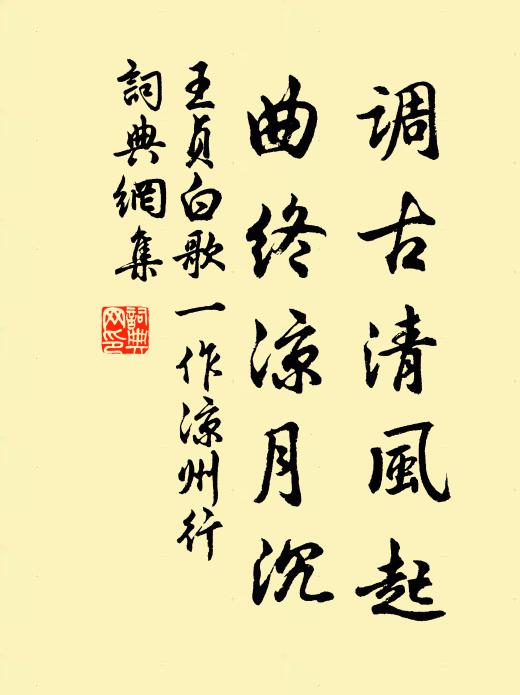 调古清風起
曲终涼月沉
王貞白歌一作涼州行
詞典網集
詞典網印